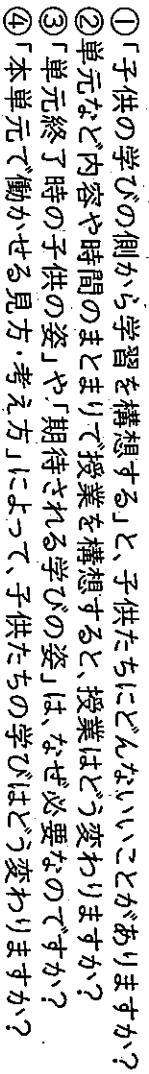 ①「子供の学びの側から学習を構想する」と、子供たちにどんないいことがありますか?
②単元など内容や時間のまとまりで授業を構想すると、授業はどう変わりますか?
③「単元終了時の子供の姿」や「期待される学びの姿」は、なぜ必要なのですか?
④「本単元で働かせる見方・考え方」によって、子供たちの学びはどう変わりますか?